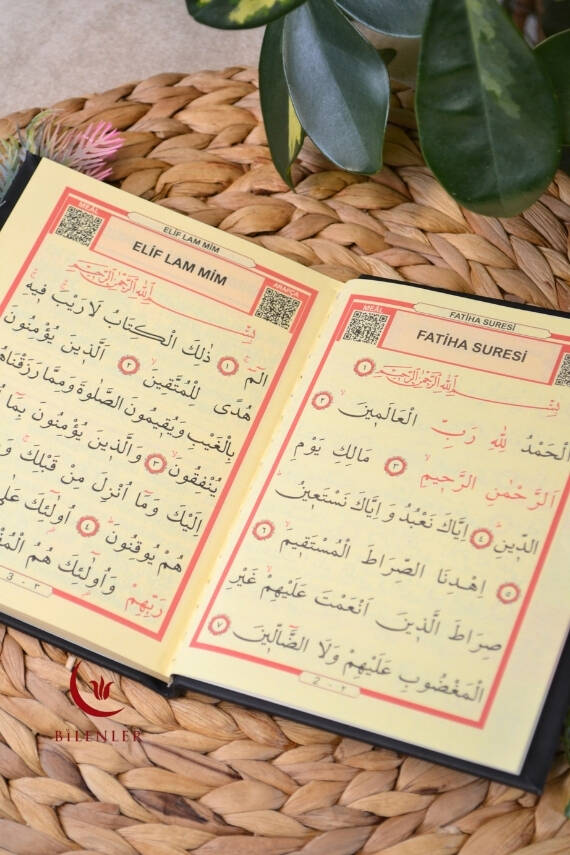 MEAL
FATİHA SURESİ
FATİHA SURESİ
بِسْــــمِ اللهِ الرَّحْمٰنِ الرَّحِيمِ ١
الْحَمْدُ لِلّٰهِ رَبِّ الْعَالَمٖينَ ٢
اَلرَّحْمٰنِ الرَّحٖيمِ ٣ مَالِكِ يَوْمِ
الدّٖينِ ٤ اِيَّاكَ نَعْبُدُ وَ اِيَّاكَ نَسْتَعٖينُ
٥ اِهْدِنَا الصِّرَاطَ الْمُسْتَقٖيمَ ٦
صِرَاطَ الَّذٖينَ اَنْعَمْتَ عَلَيْهِمْ غَيْرِ
الْمَغْضُوبِ عَلَيْهِمْ وَلَا الضَّٓالّٖينَ ٧
2 - ٢
MEAL
ELİF LAM MİM
ELİF LAM MİM
ARAPÇA
بِسْــــمِ اللهِ الرَّحْمٰنِ الرَّحِيمِ
الٓمٓ ١ ذٰلِكَ الْكِتَابُ لَا رَيْبَ فٖيهِ
هُدًى لِلْمُتَّقٖينَ ٢ اَلَّذٖينَ يُؤْمِنُونَ
بِالْغَيْبِ وَيُقٖيمُونَ الصَّلٰوةَ وَمِمَّا رَزَقْنَاهُمْ
يُنْفِقُونَ ٣ وَالَّذٖينَ يُؤْمِنُونَ بِمَٓا
اِلَيْكَ وَمَٓا اُنْزِلَ مِنْ قَبْلِكَ
هُمْ يُوقِنُونَ ٤ اُولٰٓئِكَ عَلٰى
رَبِّهِمْ وَاُولٰٓئِكَ هُمُ
3 - ٣
BİLENLER